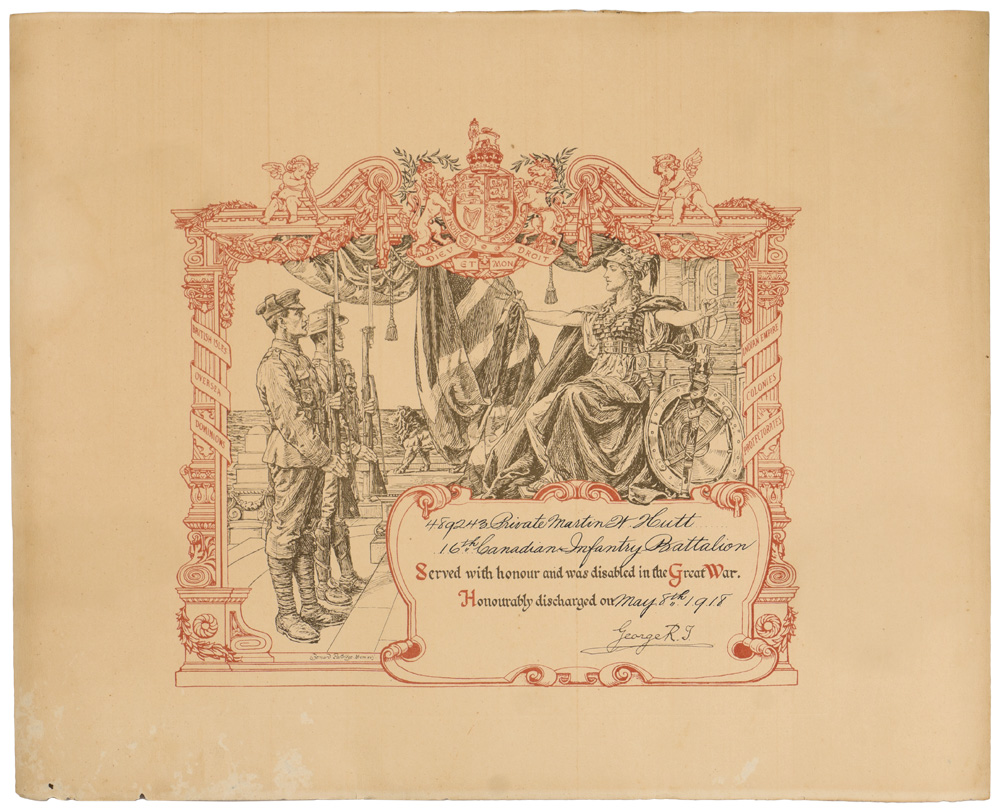 DIEU
ET
MON
DROIT
BRITISH ISLES
OVERSEA
DOMINIONS
INDIAN EMPIRE
COLONIES
PROTECTORATES
489243 Private Martin W Hutt
16th Canadian Infantry Battalion
Served with honour and was disabled in the Great War.
Honourably discharged on May 8th 1918
George R.I
Bernard Partridge